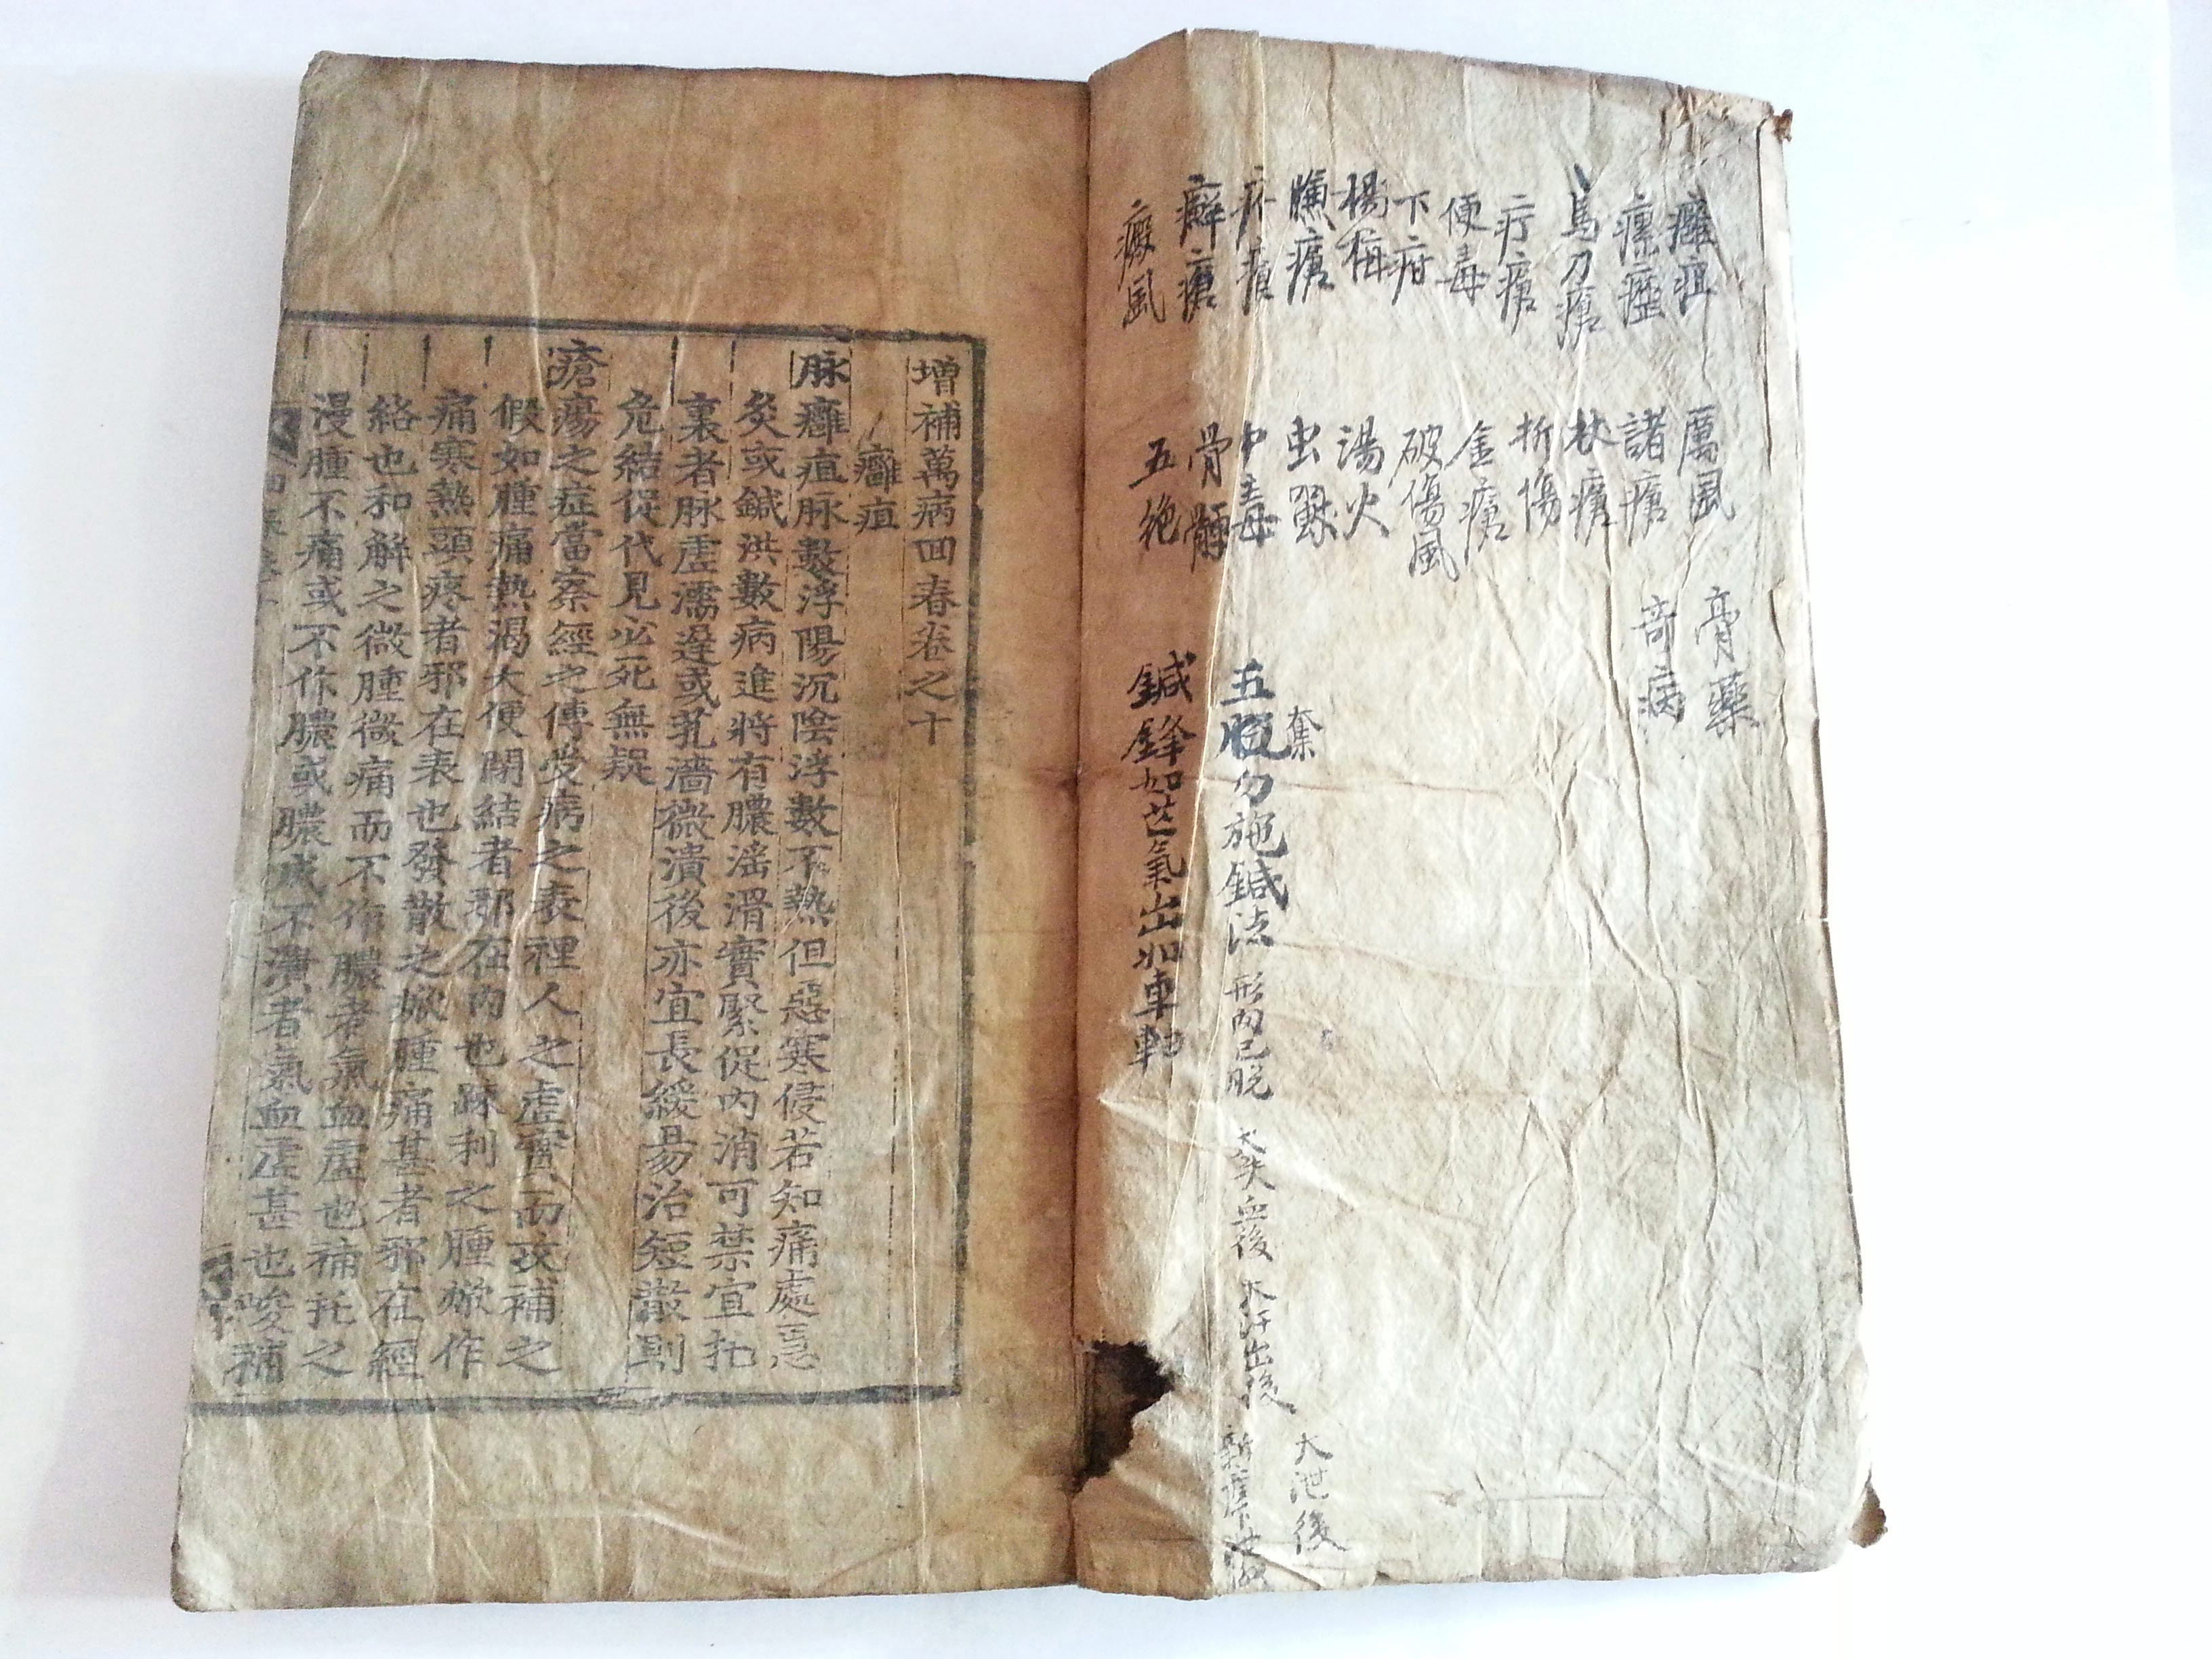 癰疽
瘰癧
馬刀瘡
疔瘡
便毒
下疳
楊梅
臁瘡
疥瘡
癬瘡
癜風
厲風
諸瘡
杖瘡
折傷
金瘡
破傷風
湯火
虫
中毒
骨鯁
五絶
膏藥
奇病
奪
五 勿施鍼法 形肉已脱 大失血後 大汗出後
大泄後
新産下
鍼鋒如芒氣出如車軸
增補萬病回春卷之十
癰疽
脉癰疽脉數浮陽沉陰浮數不熱但惡寒侵若知痛處急
灸或鍼洪數病進將有膿滛滑實緊促内消可禁宜托
裏者脉虛濡遲或芤濇微潰後亦宜長緩易治短散則
危結促代見必死無疑
瘡瘍之症當察經之傳受病之表裡人之虛實而攻補之
假如腫痛熱渴大便閉結者邪在内也踈利之腫焮作
痛寒熱頭疼者邪在表也發散之焮腫痛甚者邪在經
絡也和解之微腫微痛而不作膿者氣血虛也補托之
漫腫不痛或不作膿或膿成不潰者氣血虛甚也峻補